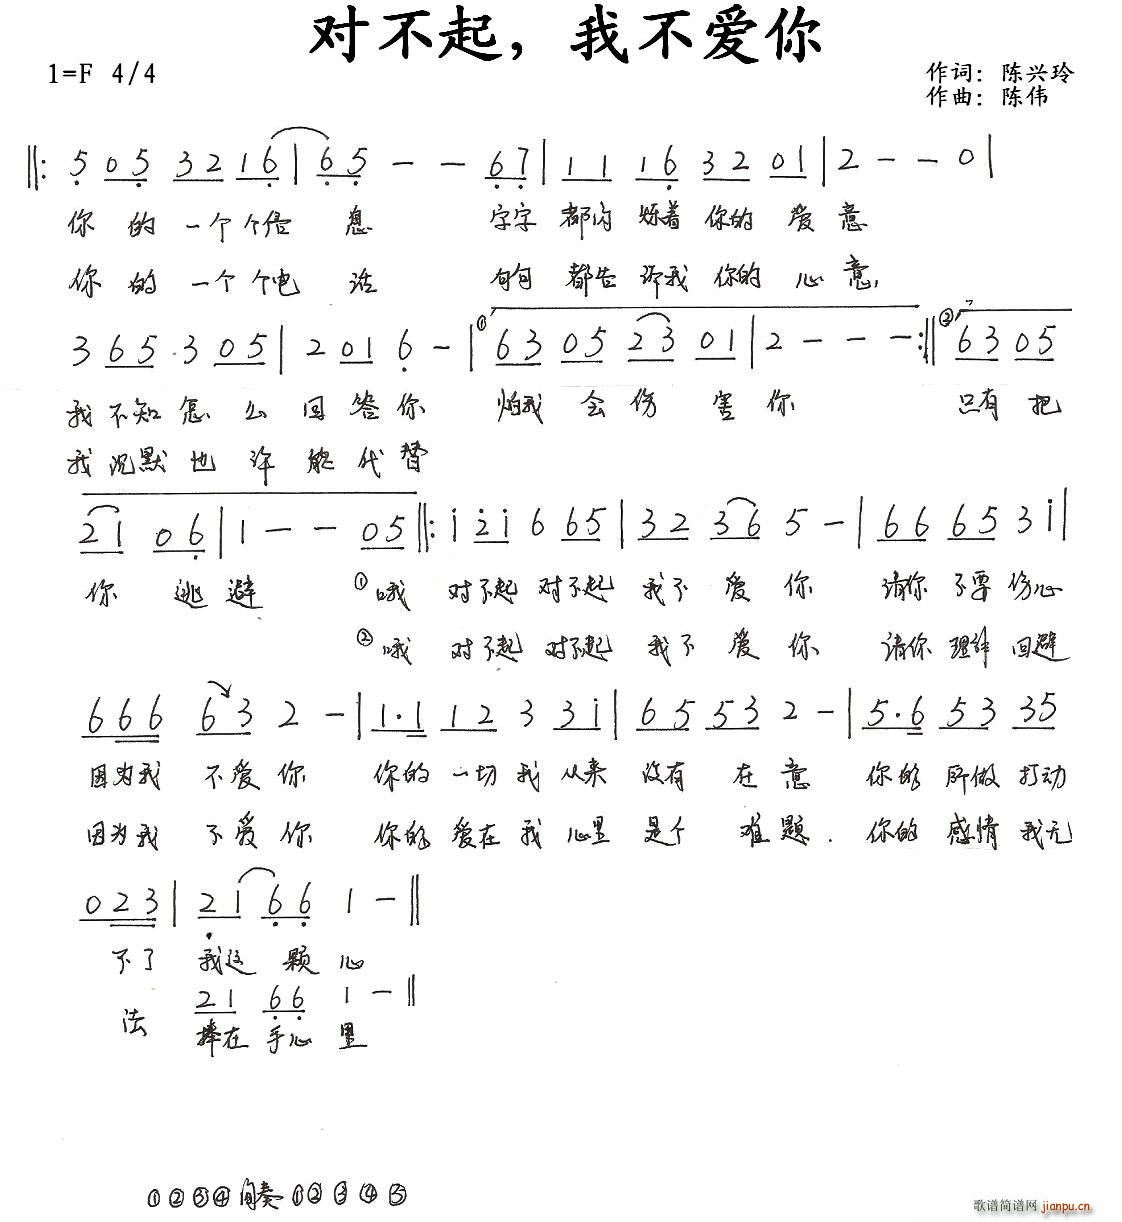 对不起，我不爱你
1=F 4/4
作词：陈兴玲
作曲：陈伟
‖: 5 05 32 16 | 65 - - 67 | 11 16 32 01 | 2 - - 0 |
你的一个个信息 字字都闪烁着你的爱意
你的一个个电话 句句都告诉我你的心意,
3 65 · 3 05 | 2 01 6 - | ① 63 05 23 01 | 2 - - - :‖ ② 63 05
我不知怎么回答你 怕我会伤害你 只有把
我沉默也许能代替
21 06 | 1 - - 05 ‖: i 2i 6 65 | 32 36 5 - | 66 65 3i |
你逃避 ①哦 对不起 对不起 我不爱你 请你不要伤心
②哦 对不起 对不起 我不爱你 请你理解回避
666 63 2 - | 1·1 12 3 3i | 65 53 2 - | 5·6 53 35
因为我不爱你 你的一切我从来没有在意 你的所做打动
因为我不爱你 你的爱在我心里是个难题. 你的感情我无
023 | 21 66 1 - ‖
不了 我这颗心
21 66 1 - ‖
法 捧在手心里
①②③④ 间奏 ①②③④⑤
歌谱简谱网 jianpu.cn